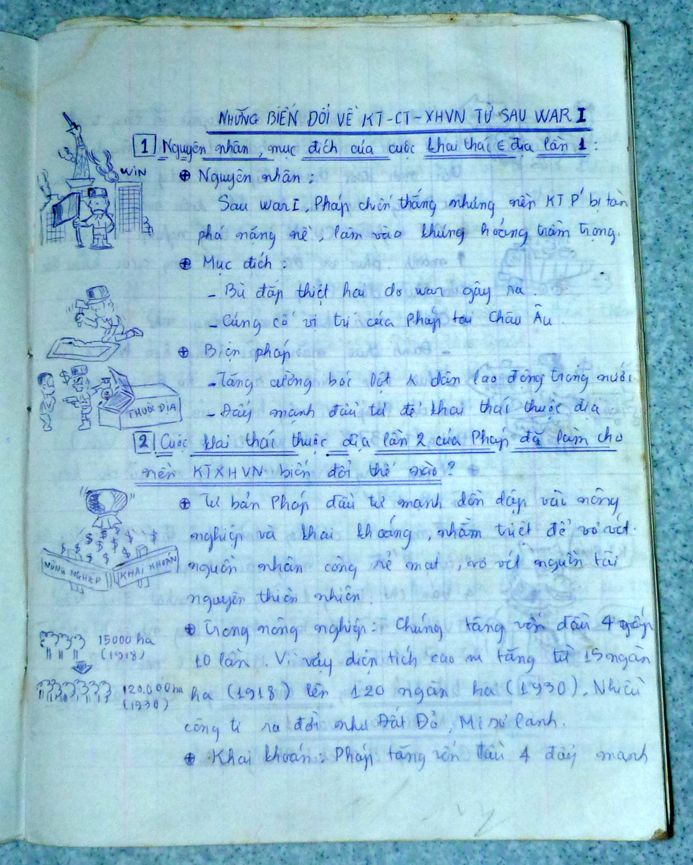 NHỮNG BIẾN ĐỔI VỀ KT-CT-XHVN TỪ SAU WAR I
1 Nguyên nhân, mục đích của cuộc khai thái € địa lần 1:
⊕ Nguyên nhân:
WIN
Sau War I, Pháp chiến thắng nhưng nền KT P' bị tàn
phá nặng nề, lâm vào khủng hoảng trầm trọng.
⊕ Mục đích:
- Bù đắp thiệt hại do war gây ra.
- Củng cố vị trí của Pháp tại Châu Âu.
⊕ Biện pháp
- Tăng cường bóc lột n dân lao động trong nước.
- Đẩy mạnh đầu tư để khai thái thuộc địa
THUỘC ĐỊA
2 Cuộc khai thái thuộc địa lần 2 của Pháp đã làm cho
nền KTXHVN biến đổi thế nào?
⊕ Tư bản Pháp đầu tư mạnh dồn dập vào nông
nghiệp và khai khoáng, nhằm triệt để vơ vét
nguồn nhân công rẻ mạt, vơ vét nguồn tài
nguyên thiên nhiên.
NÔNG NGHIỆP
KHAI KHOÁN
$ $ $ $ $ $ $
⊕ Trong nông nghiệp: Chúng tăng vốn đầu 4 gấp
10 lần. Vì vậy diện tích cao su tăng từ 15 ngàn
ha (1918) lên 120 ngàn ha (1930). Nhiều
công ti ra đời như Đất Đỏ, Misơlanh.
15000 ha
(1918)
120.000 ha
(1930)
⊕ Khai khoán: Pháp tăng vốn đầu 4 đẩy mạnh